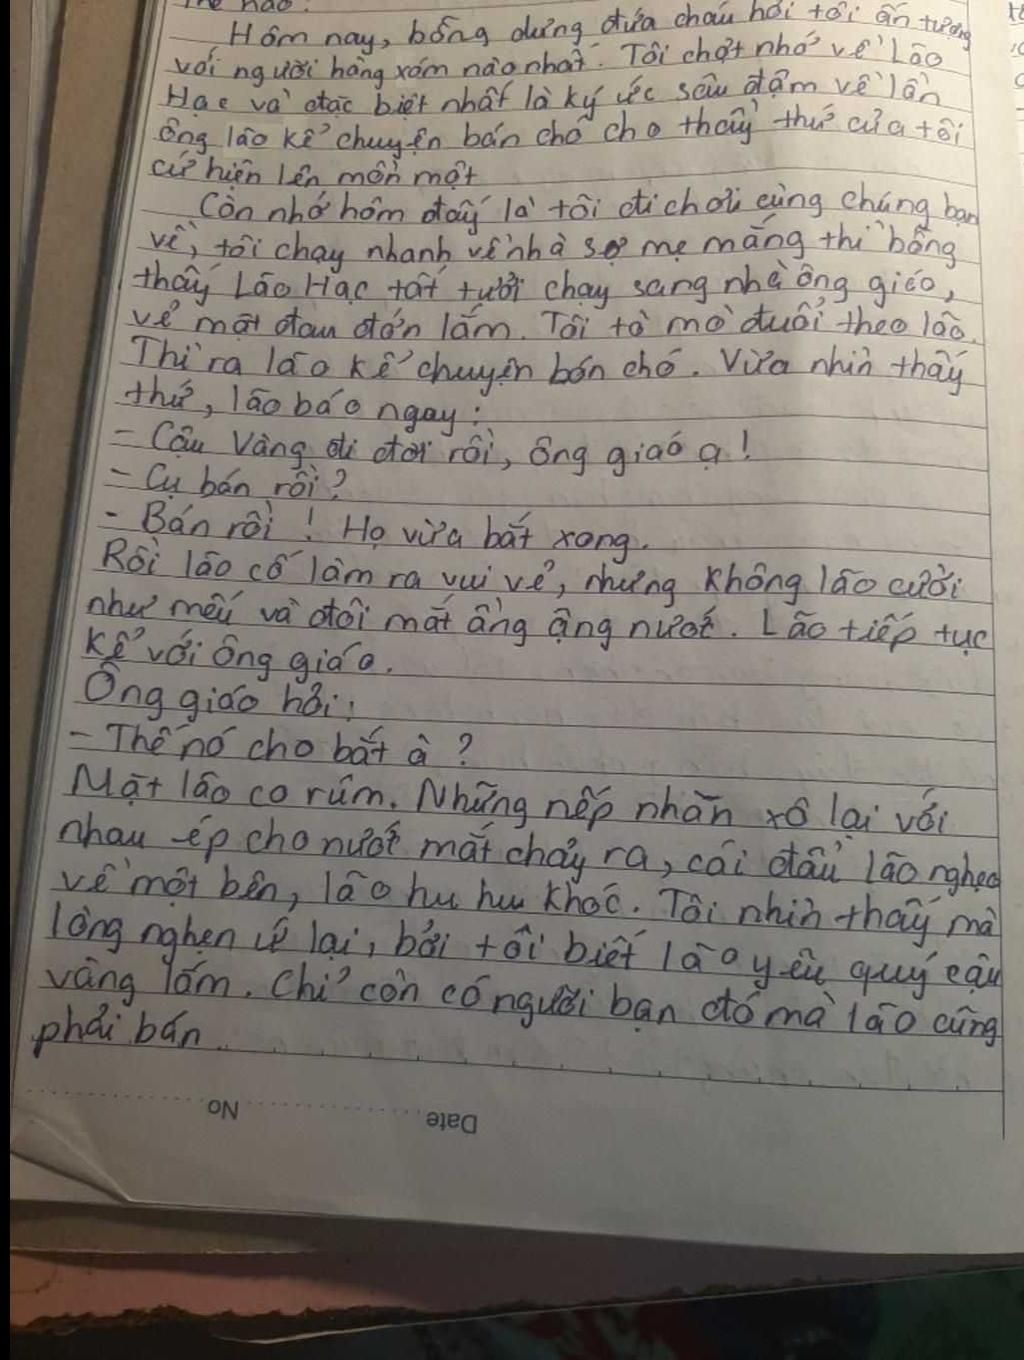 thế nào?
Hôm nay, bỗng dưng đứa cháu hỏi tôi ấn tượng
với người hàng xóm nào nhất. Tôi chợt nhớ về Lão
Hạc và đặc biệt nhất là ký ức sâu đậm về lần
ông lão kể chuyện bán chó cho thầy thứ của tôi
cứ hiện lên mồn một
Còn nhớ hôm đấy là tôi đi chơi cùng chúng bạn
về, tôi chạy nhanh về nhà sợ mẹ mắng thì bỗng
thấy Lão Hạc tất tưởi chạy sang nhà ông giáo,
vẻ mặt đau đớn lắm. Tôi tò mò đuổi theo lão.
Thì ra lão kể chuyện bán chó. Vừa nhìn thấy
thứ, lão báo ngay:
- Cậu Vàng đi đời rồi, ông giáo ạ!
- Cụ bán rồi?
- Bán rồi! Họ vừa bắt xong.
Rồi lão cố làm ra vui vẻ, nhưng không lão cười
như mếu và đôi mắt ầng ậng nước. Lão tiếp tục
kể với ông giáo.
Ông giáo hỏi:
- Thế nó cho bắt à?
Mặt lão co rúm. Những nếp nhăn xô lại với
nhau ép cho nước mắt chảy ra, cái đầu lão nghẹo
về một bên, lão hu hu khóc. Tôi nhìn thấy mà
lòng nghẹn ứ lại, bởi tôi biết lão yêu quý cậu
vàng lắm. Chỉ còn có người bạn đó mà lão cũng
phải bán
Date No